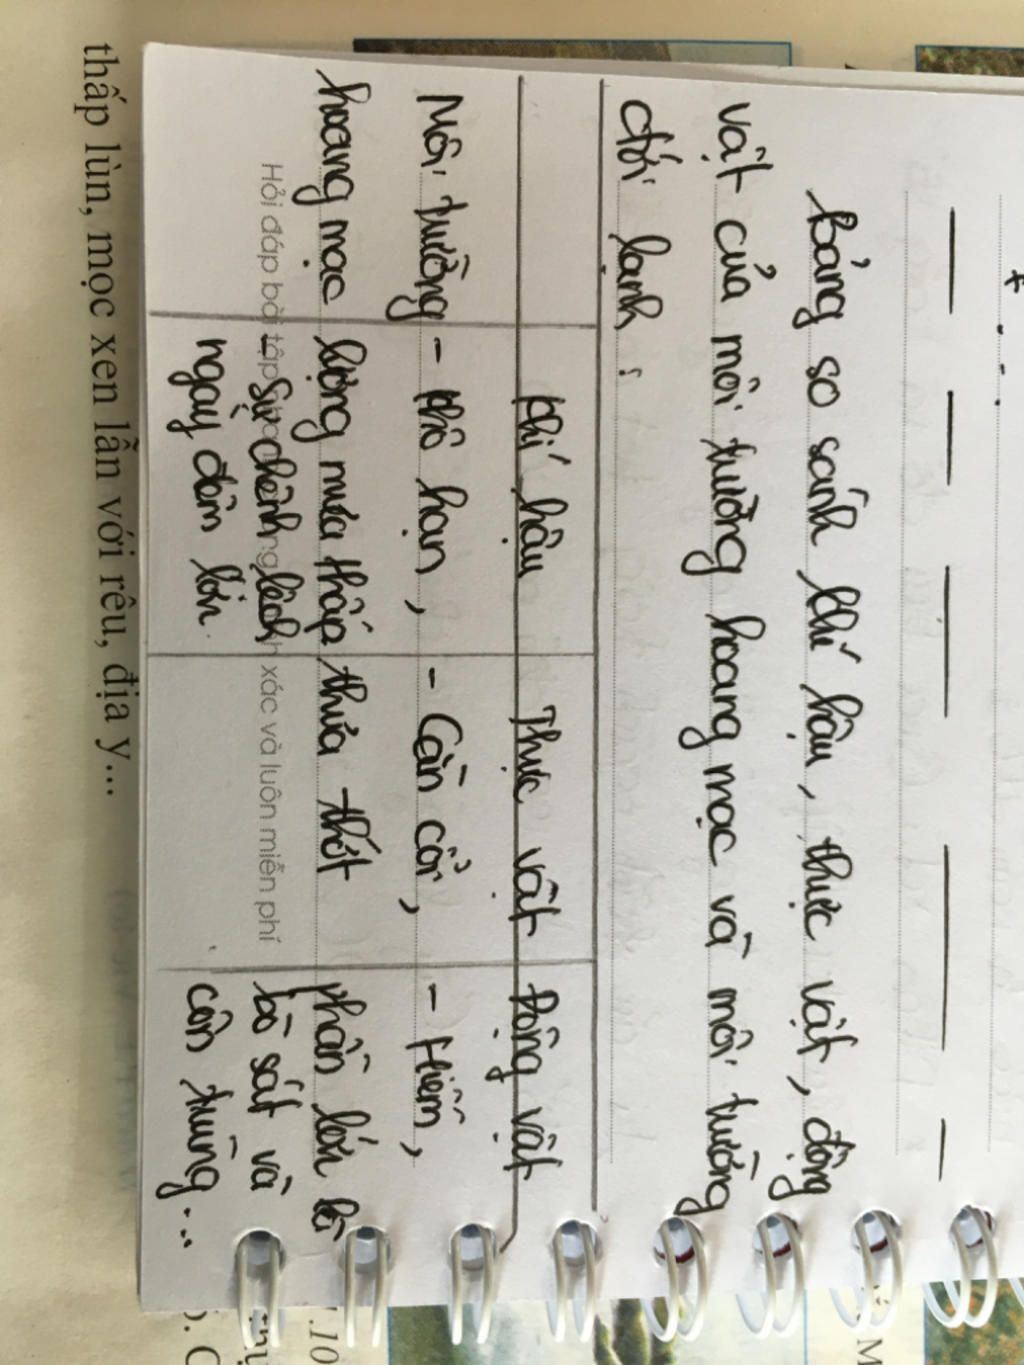 Bảng so sánh khí hậu, thực vật, động
vật của môi trường hoang mạc và môi trường
đới lạnh:
Khí hậu Thực vật Động vật
Môi trường - Khô hạn, - Cằn cỗi, - Hiếm,
hoang mạc lượng mưa thấp thưa thớt phần lớn là
- Sự chênh lệch bò sát và
ngày đêm lớn. côn trùng...
Hỏi đáp bài tập xác và luôn miễn phí
thấp lùn, mọc xen lẫn với rêu, địa y...